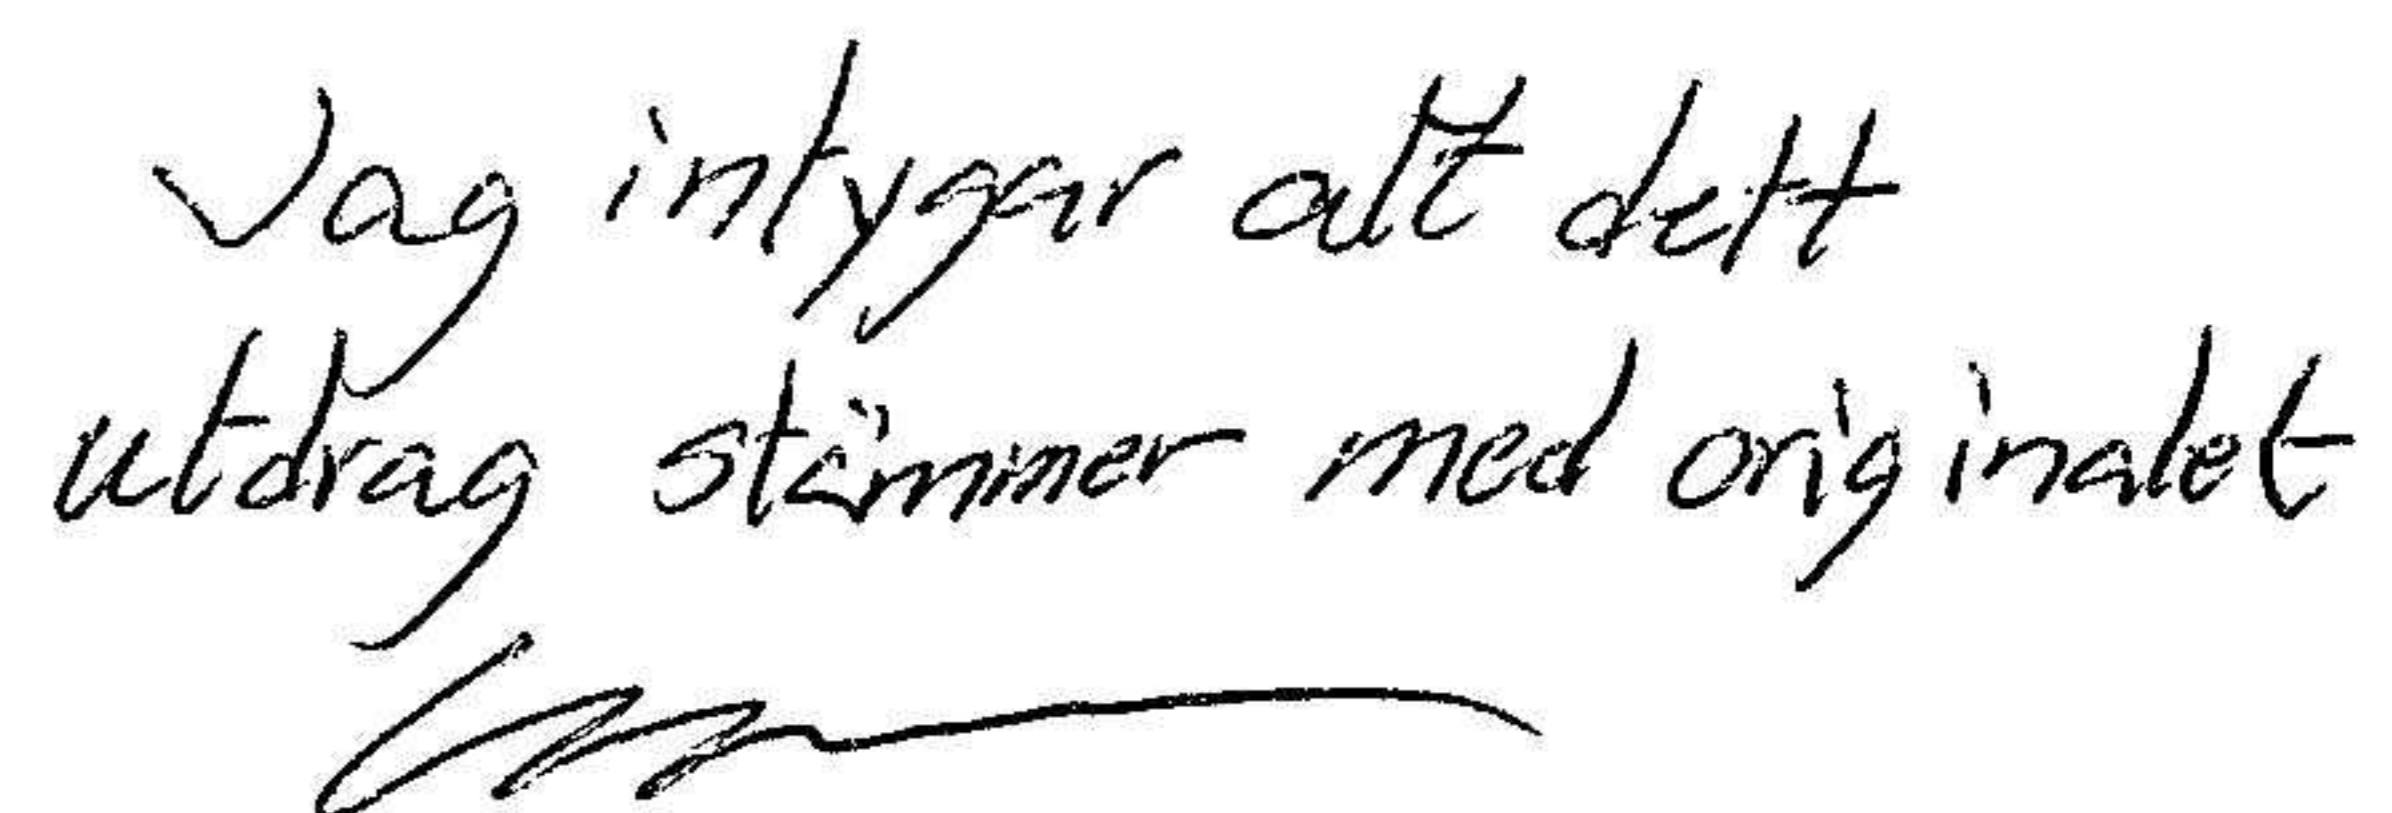 Jag intygar att dett
utdrag stämmer med originalet